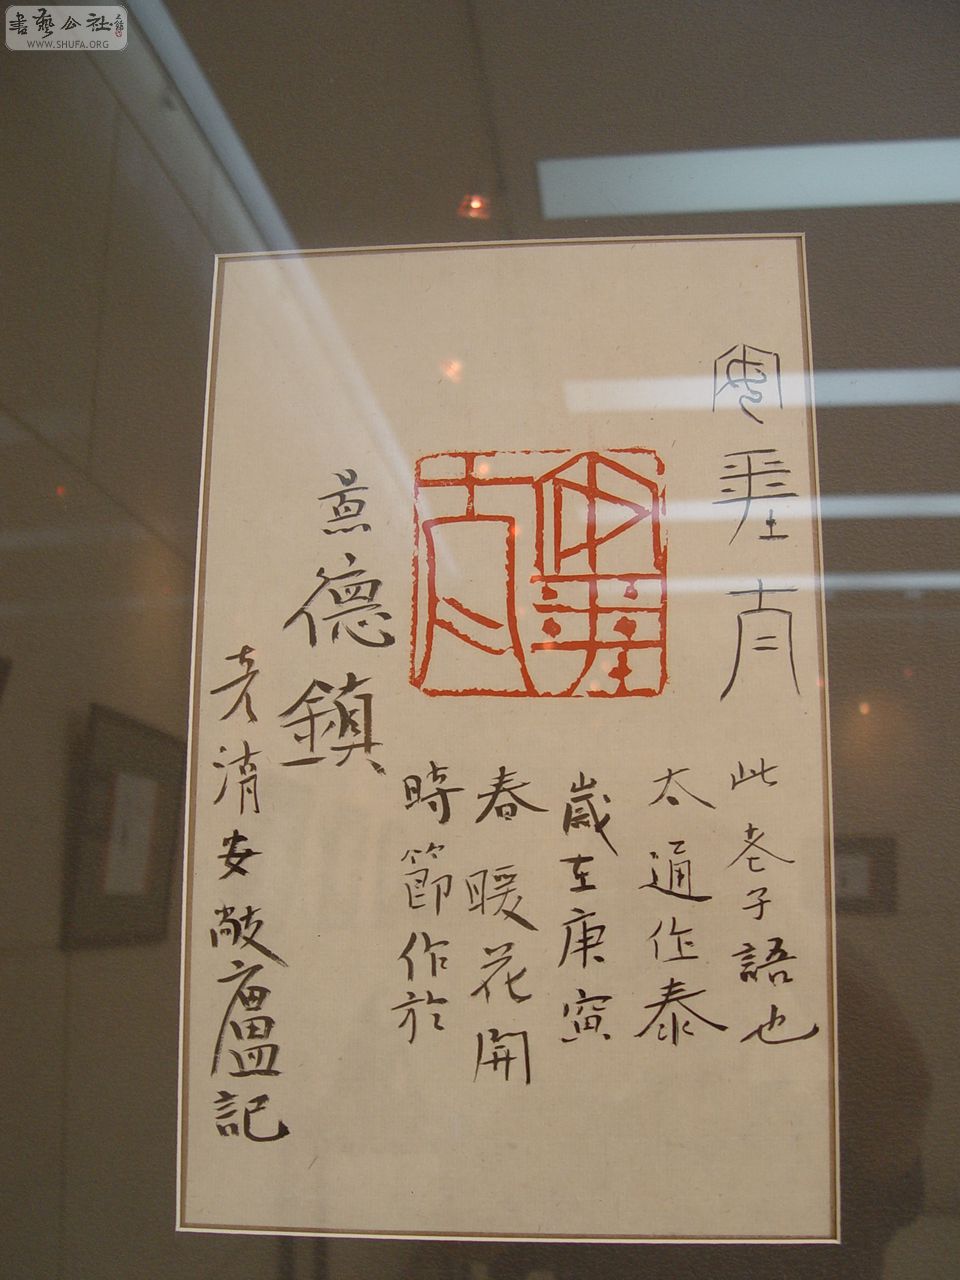 書藝公社
WWW.SHUFA.ORG
此老子語也
太通作泰
歲在庚寅
春暖花開
時節作於
景德鎮
安敞廬記